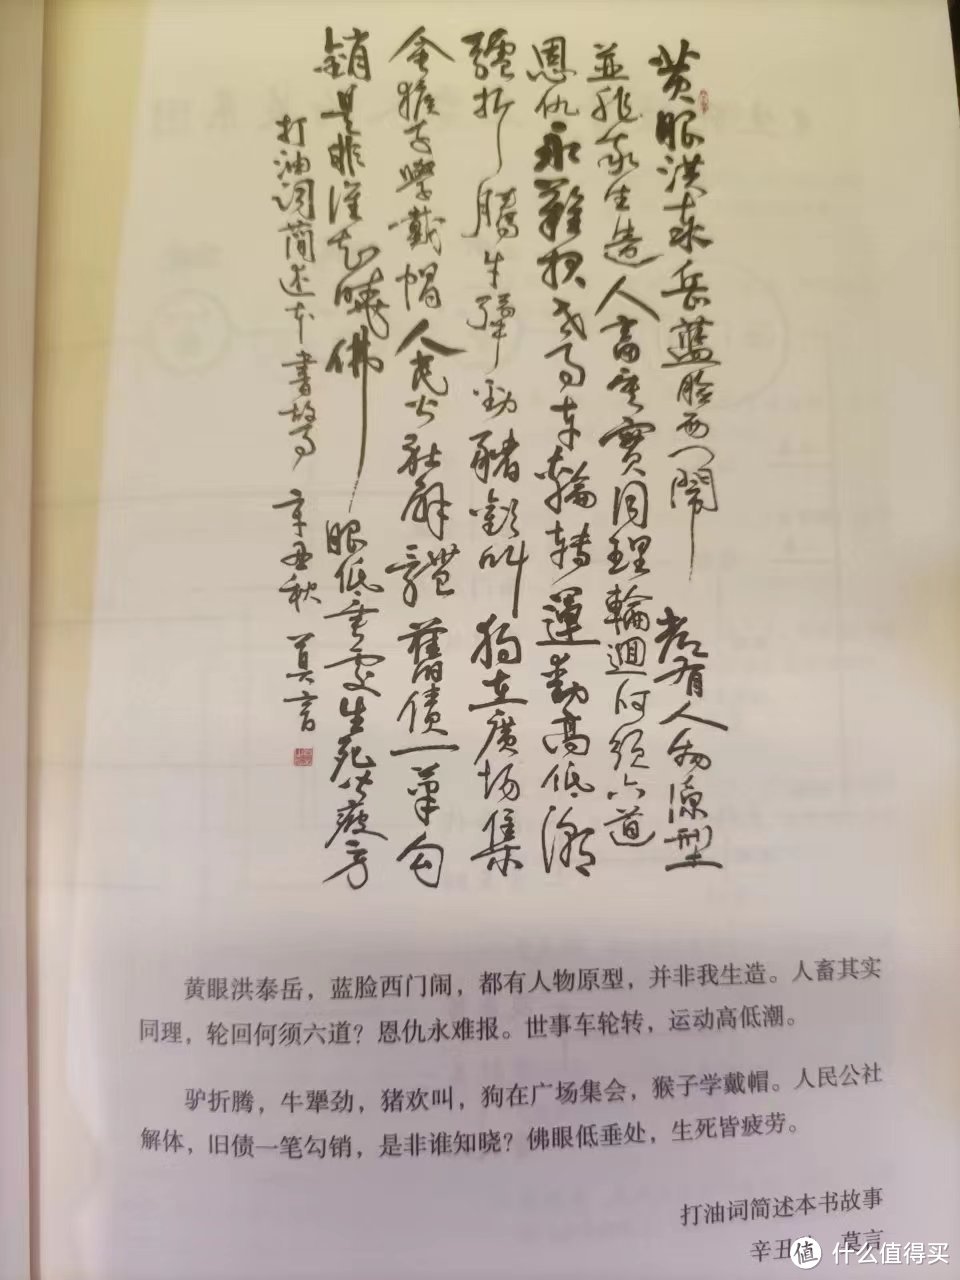 黄眼洪泰岳藍脸西门鬧 都有人物原型
並非我生造人畜其實同理輪迴何须六道
恩仇永難报世事车輪轉運動高低潮
驢折腾牛犟劲豬歡叫狗在廣场集
會猴子學戴帽人民公社解體舊债一筆勾
銷是非谁知曉佛眼低垂處生死皆疲劳
打油词简述本書故事 辛丑秋 莫言
黄眼洪泰岳，蓝脸西门闹，都有人物原型，并非我生造。人畜其实
同理，轮回何须六道？恩仇永难报。世事车轮转，运动高低潮。
驴折腾，牛犟劲，猪欢叫，狗在广场集会，猴子学戴帽。人民公社
解体，旧债一笔勾销，是非谁知晓？佛眼低垂处，生死皆疲劳。
打油词简述本书故事
辛丑 莫言
值 什么值得买